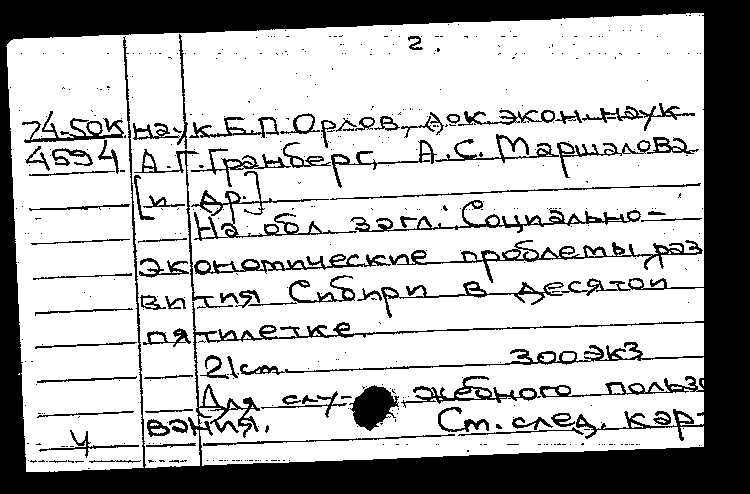 2.
74-50К наук Б.П.Орлов, док.экон.наук
4594 А.Г.Гранберг, А.С.Маршалова
[и др].
На обл. загл.: Социально-
экономические проблемы раз
вития Сибири в десятой
пятилетке.
21см. 300экз
Для слу- жебного пользо
вания. Ст.след. кар-
Ч